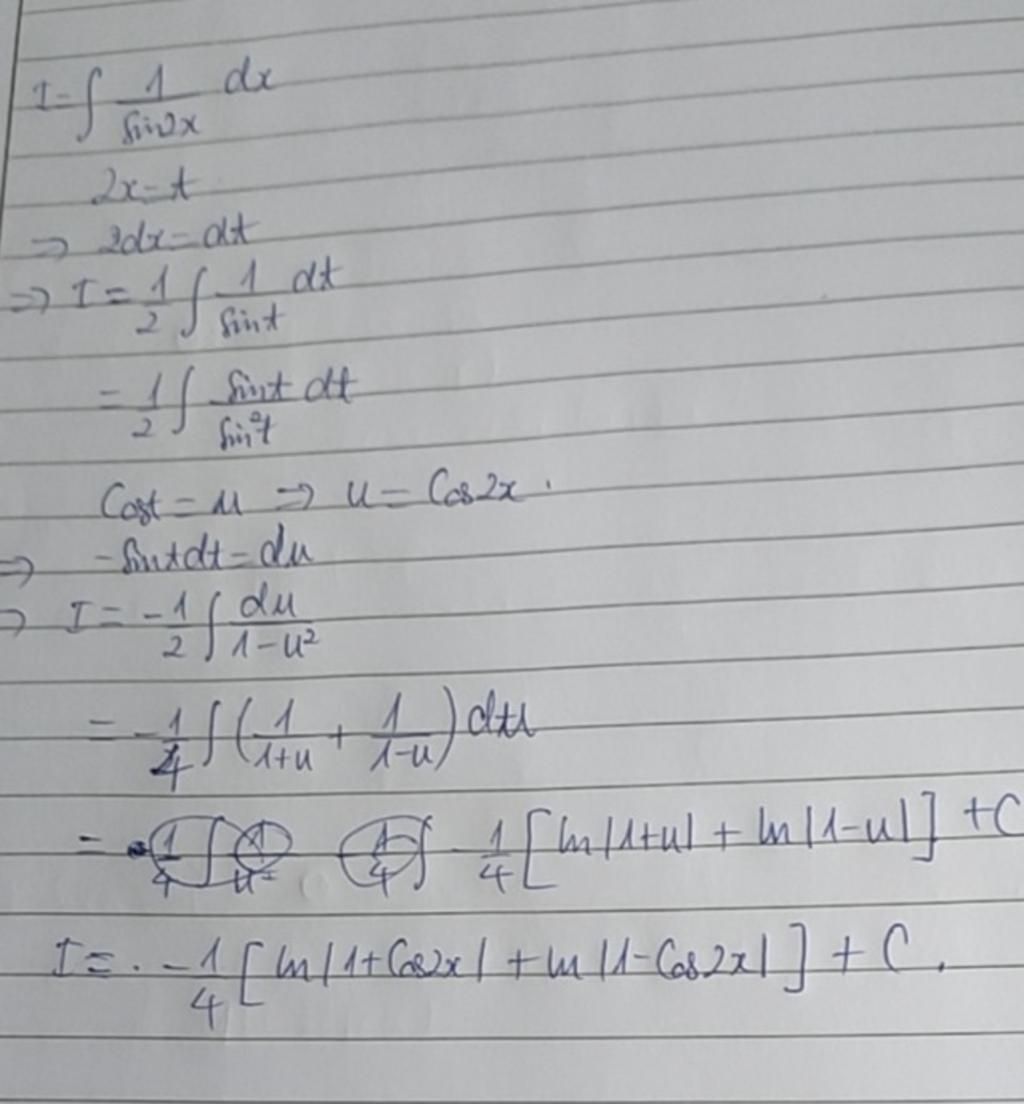 I = ∫ 1/sin2x dx
2x = t
⇒ 2dx = dt
⇒ I = 1/2 ∫ 1/sint dt
= 1/2 ∫ sint dt/sin²t
Cost = u ⇒ u = Cos2x .
⇒ -sint dt = du
⇒ I = -1/2 ∫ du/1-u²
= -1/4 ∫ (1/1+u + 1/1-u) du
= - 1/4 [ln|1+u| + ln|1-u|] + C
I = . -1/4 [ln|1+Cos2x| + ln|1-Cos2x|] + C .